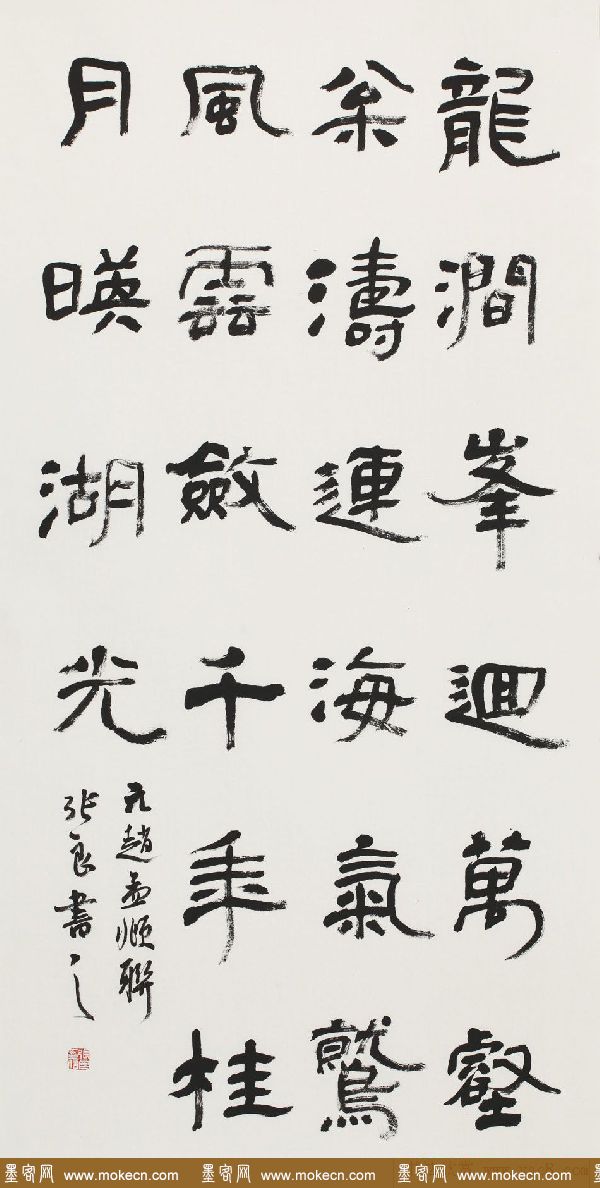 龍澗峯迴萬壑
枀濤連海氣鷲
風雲斂千年桂
月暎湖光
元趙孟頫聯
張良書之
墨客网 www.mokecn.com 墨客网 www.mokecn.com 墨客网 www.mokecn.com